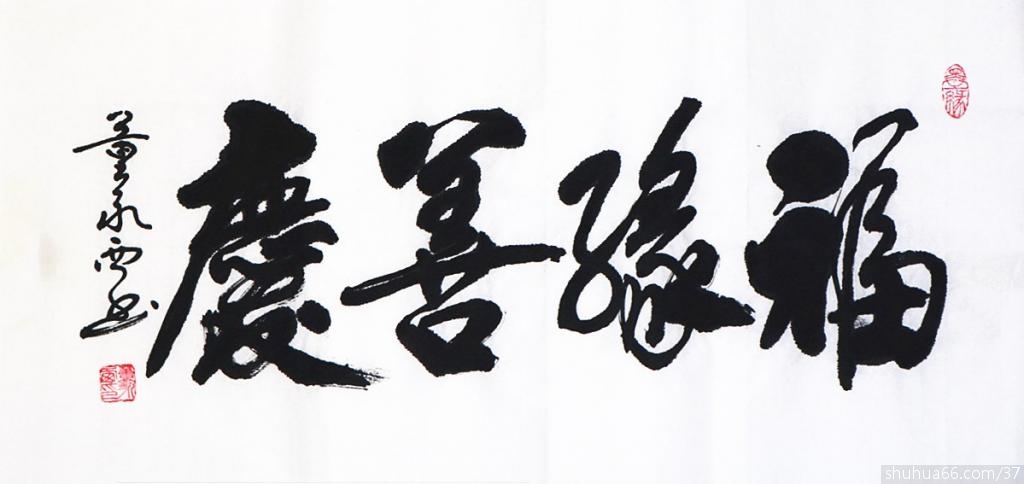 福緣善慶
董永西書
shuhua66.com/37